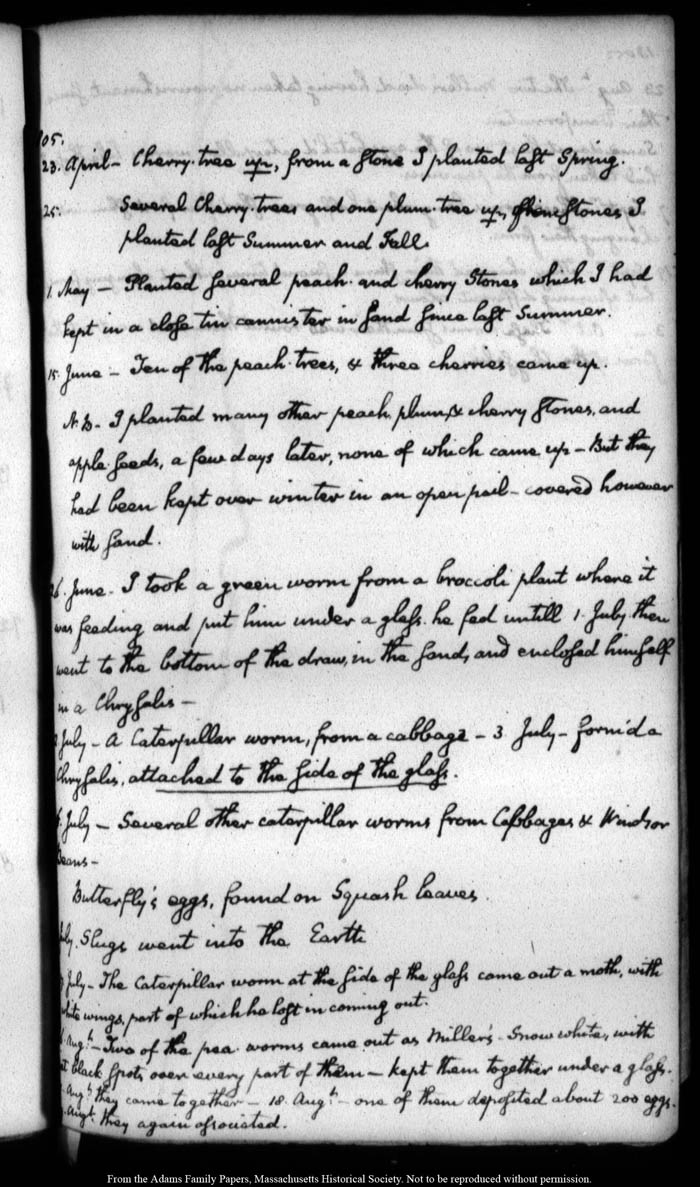 05.
23. April - Cherry. tree up, from a stone I planted last Spring.
25. Several Cherry. trees and one plum. tree up, Stones I
planted last Summer and Fall.
1. May - Planted several peach. and cherry Stones which I had
kept in a close tin cannister in sand since last Summer.
15. June - Ten of the peach. trees, & three cherries came up.
N.B. I planted many other peach, plum, & cherry stones, and
apple seeds, a few days later, none of which came up - But they
had been kept over winter in an open pail - covered however
with sand.
26. June. I took a green worm from a broccoli plant where it
was feeding and put him under a glass. he fed untill 1. July then
went to the bottom of the draw, in the sand, and enclosed himself
in a Chrysalis -
July - A Caterpillar worm, from a cabbage - 3. July - form'd a
Chrysalis, attached to the side of the glass.
July - Several other caterpillar worms from Cabbages & Windsor
Beans -
Butterfly's eggs, found on Squash leaves.
July. Slugs went into the Earth
July - The Caterpillar worm at the side of the glass came out a moth, with
white wings, part of which he lost in coming out.
Augt. - Two of the pea. worms came out as Miller's - Snow white, with
black spots over every part of them - kept them together under a glass.
Augt. they came together - 18. Augt. - one of them deposited about 200 eggs.
Augt. they again associated.
From the Adams Family Papers, Massachusetts Historical Society. Not to be reproduced without permission.